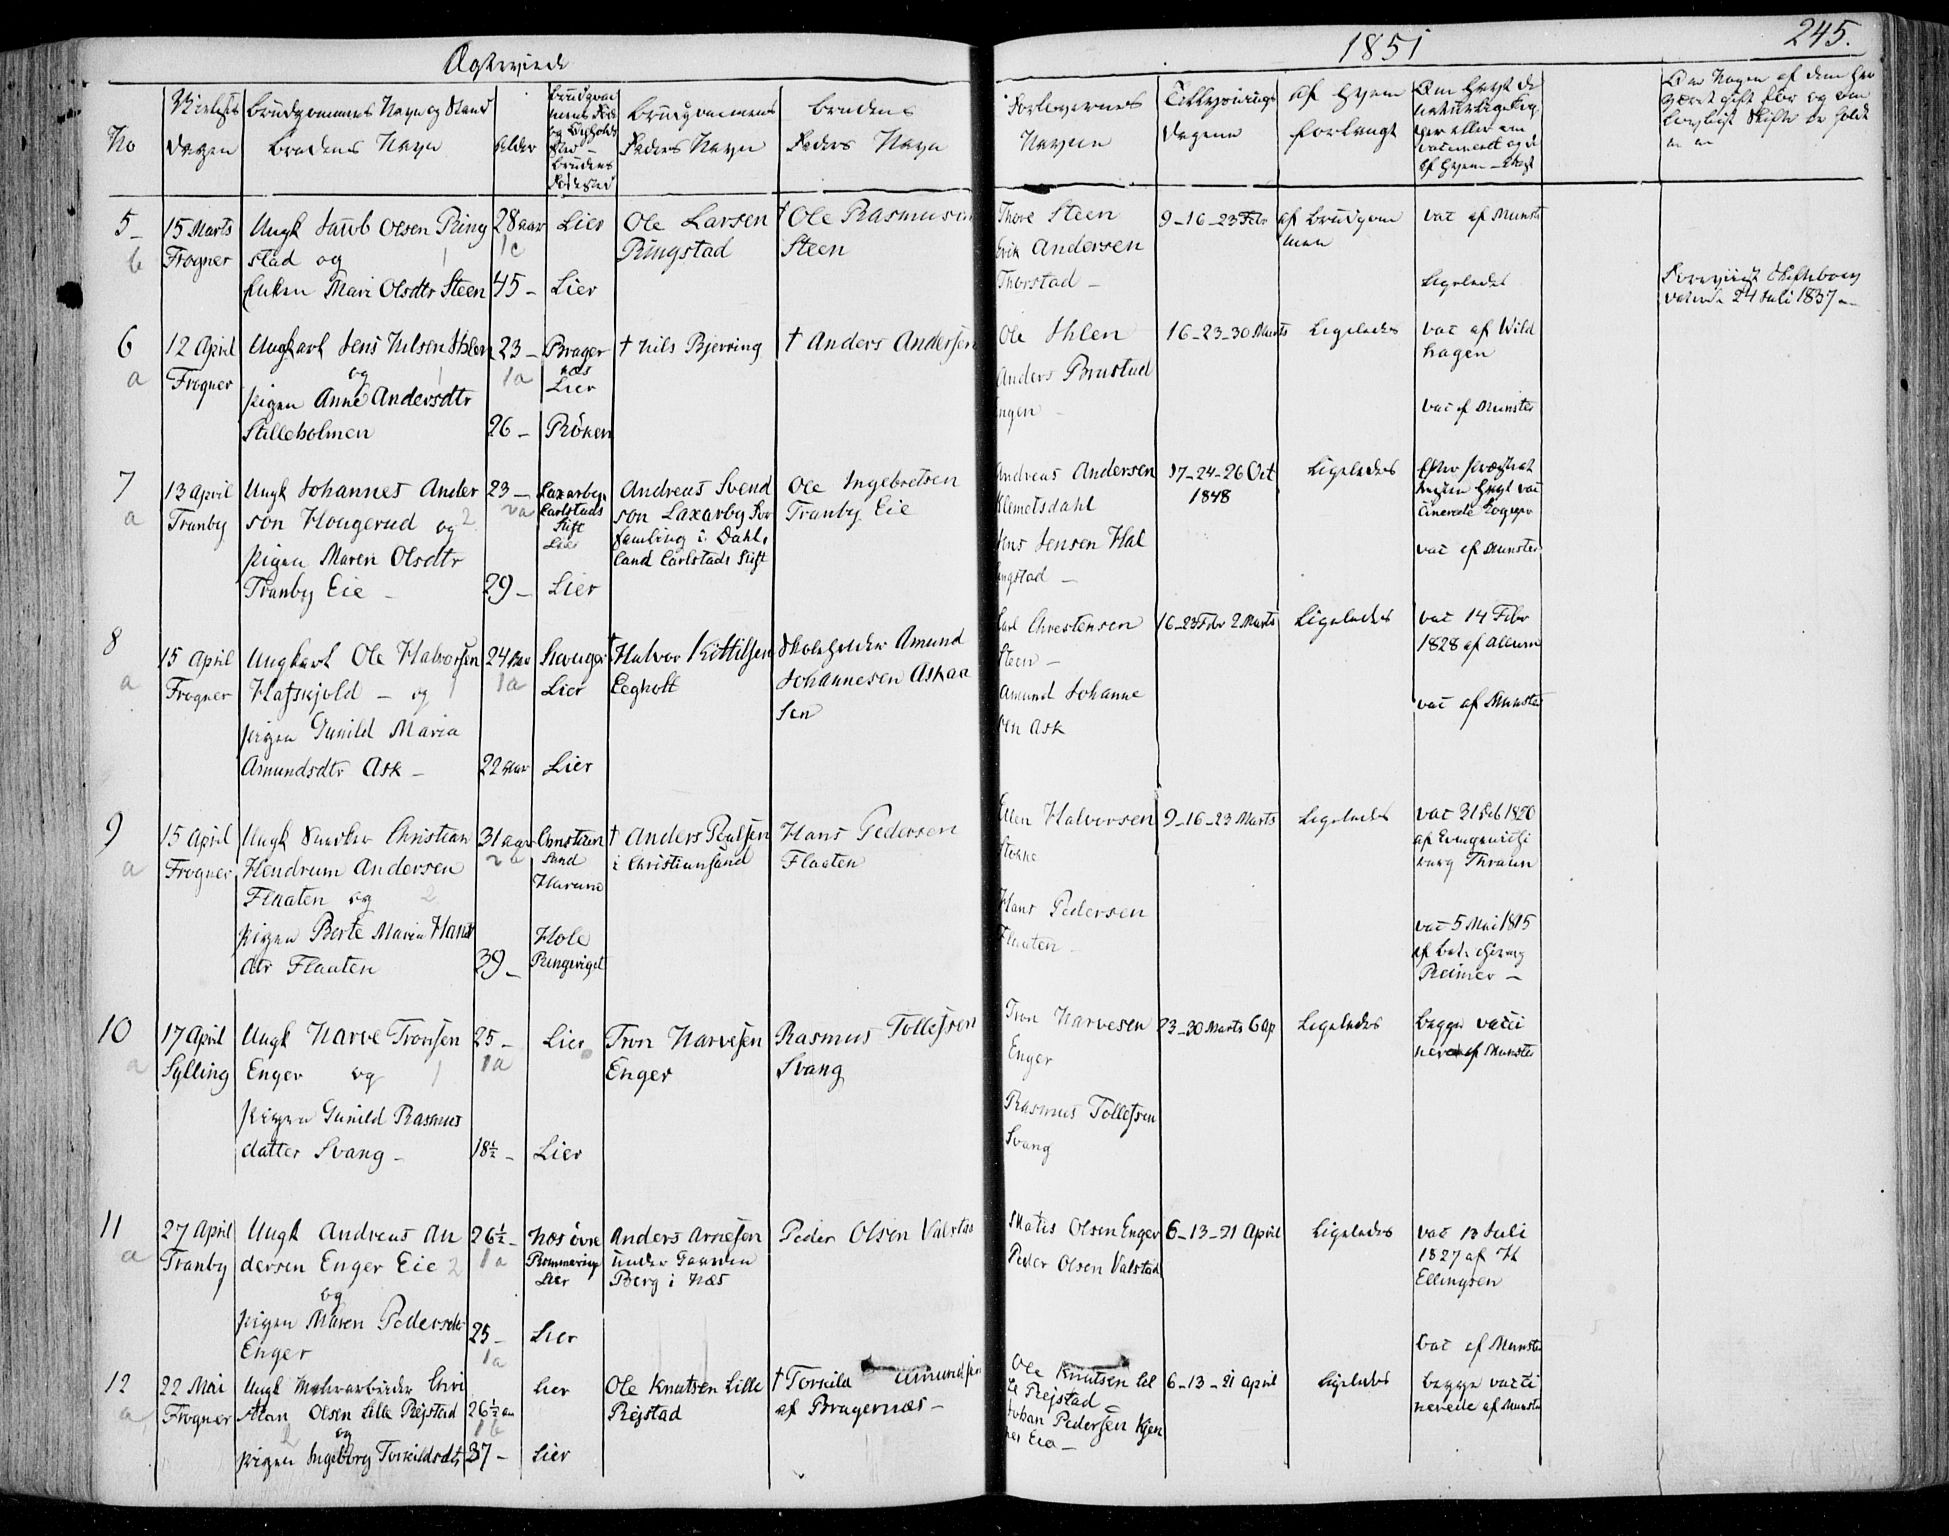 1851
245.
No
Vielses
Dagen
Brudgommens Navn og Stand
Brudens Navn
Alder
Brudgommens
Faders Navn
Brudens
Faders Navn
Forlovernes
Navne
Tillysnings
Dagene
Af Hvem
forlangt
5
b
15 Marts
Frogner
Ungk Jacob Olsen Ring
stad og
Enken Mari Olsdtr Steen
28 aar
45 -
Lier
Lier
Ole Larsen
Ringstad
† Ole Rasmussen
Steen
Thore Steen
Erik Andersen
Thorstad -
9-16-23 Febr
af Brudgom
men
vac af Munster
Ligeledes
24 Juli 1837
6
a
12 April
Frogner
Ungkarl Jens Nilsen Ihlen
og
Pigen Anne Andersdtr
Stilleholmen
23 -
1a
26 -
Brager
næs
Lier
Röken
† Nils Bjerring
† Anders Andersen
Ole Ihlen
Anders Brustad
engen -
16-23-30 Marts
Ligeledes
vac af Wild
hagen
vac af Munster
7
a
13 April
Tranby
Ungk Johannes Ander
son Hougerud og 2
Pigen Maren Olsdtr
Tranby Eie -
23 -
2a
29 -
Laxarby
Carlstads
Stift
Lier
Lier
Andreas Svend
son Laxarby For
samling i Dahls
land Carlstads Stift
Ole Ingebretsen
Tranby Eie
Andreas Andersen
Klemetsdahl
Jens Jensen Hal
ingstad -
17-24-26 Oct
1848
Ligeledes
vac af Munster
8
a
15 April
Frogner
Ungkarl Ole Halvorsen
Hafskjold - og 1
Pigen Gunild Maria
Amundsdtr Ask -
24 aar
1a
22 aar
Lier
Lier
† Halvor Kittilsen
Eegholt
Skoleholder Amund
Johannesen Askaa
sen
Carl Chrestensen
Steen -
Amund Johanne
sen Ask
16-23 Febr 2 Marts
Ligeledes
vac 14 Febr
1828 af Allum
vac af Munster
9
a
15 April
Frogner
Ungk Snedker Christian
Hendrum Andersen
Flaaten og 2
Pigen Berte Maria Hans
dtr Flaaten
31 aar
39 -
Christian
sand
Hole
Ringeriget
† Anders Poulsen
i Christiansand
Hans Pedersen
Flaaten
Ellen Halvorsen
Stokke
Hans Pedersen
Flaaten -
9-16-23 Marts
Ligeledes
Thraun
vac 5 Mai 1815
Reimer -
10
a
17 April
Sylling
Ungk Narve Tronsen
Enger og 1
Pigen Gunild Rasmus
datter Svang -
25 -
1a
18½ -
Lier
Lier
Tron Narvesen
Enger
Rasmus Tollefsen
Svang
Tron Narvesen
Enger
Rasmus Tollefsen
Svang
23-30 Marts 6 Ap
Ligeledes
Begge vacci
nerede af Munster
11
a
27 April
Tranby
Ungk Andreas An
dersen Enger Eie 2
og
Pigen Maren Pedersdtr
Enger
26½ -
1a
25 -
1a
Næs övre
Romerige
Lier
Lier
Anders Arnesen
under Gaarden
Berg i Næs
Peder Olsen Valstad
Mathis Olsen Enger
Peder Olsen Valstad
6-13-21 April
Ligeledes
vac 13 Juli
1827 af H
Ellingsen
vac af Munster
12
a
22 Mai
Frogner
Ungk Malerarbeider Chri
stian Olsen Lille Rejstad
2 og
Pigen Ingeborg Torkildsdtr
26½ aar
1b
37 -
Lier
Lier
Ole Knutsen Lille
Rejstad
† Torkild Amundsen
af Bragernæs -
Ole Knutsen Lil
le Rejstad
Johan Pedersen Kjen
nes Eie -
6-13-21 April
Ligeledes
begge vacci
nerede af Munster